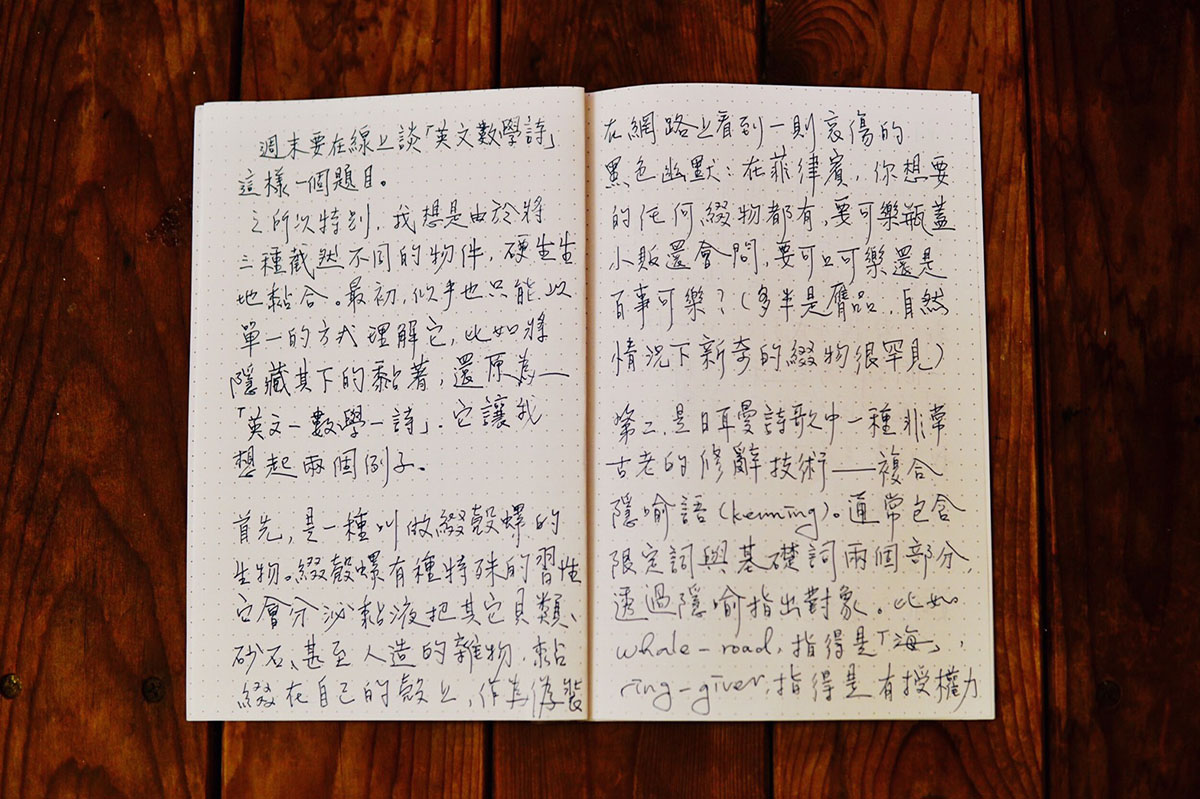 週末要在線上談「英文數學詩」
這樣一個題目。
之所以特別，我想是由於將
三種截然不同的物件，硬生生
地黏合。最初，似乎也只能以
單一的方式理解它，比如將
隱藏其下的黏著，還原為—
「英文－數學－詩」。它讓我
想起兩個例子。
首先，是一種叫做綴殼螺的
生物。綴殼螺有種特殊的習性
它會分泌黏液把其它貝類、
砂石、甚至人造的雜物，黏
綴在自己的殼上，作為偽裝
在網路上看到一則哀傷的
黑色幽默：在菲律賓，你想要
的任何綴物都有，要可樂瓶蓋
小販還會問，要可口可樂還是
百事可樂？（多半是贗品，自然
情況下新奇的綴物很罕見）
第二，是日耳曼詩歌中一種非常
古老的修辭技術——複合
隱喻語（kenning）。通常包含
限定詞與基礎詞兩個部分，
透過隱喻指出對象。比如
whale-road，指得是「海」，
ring-giver，指得是有授權力